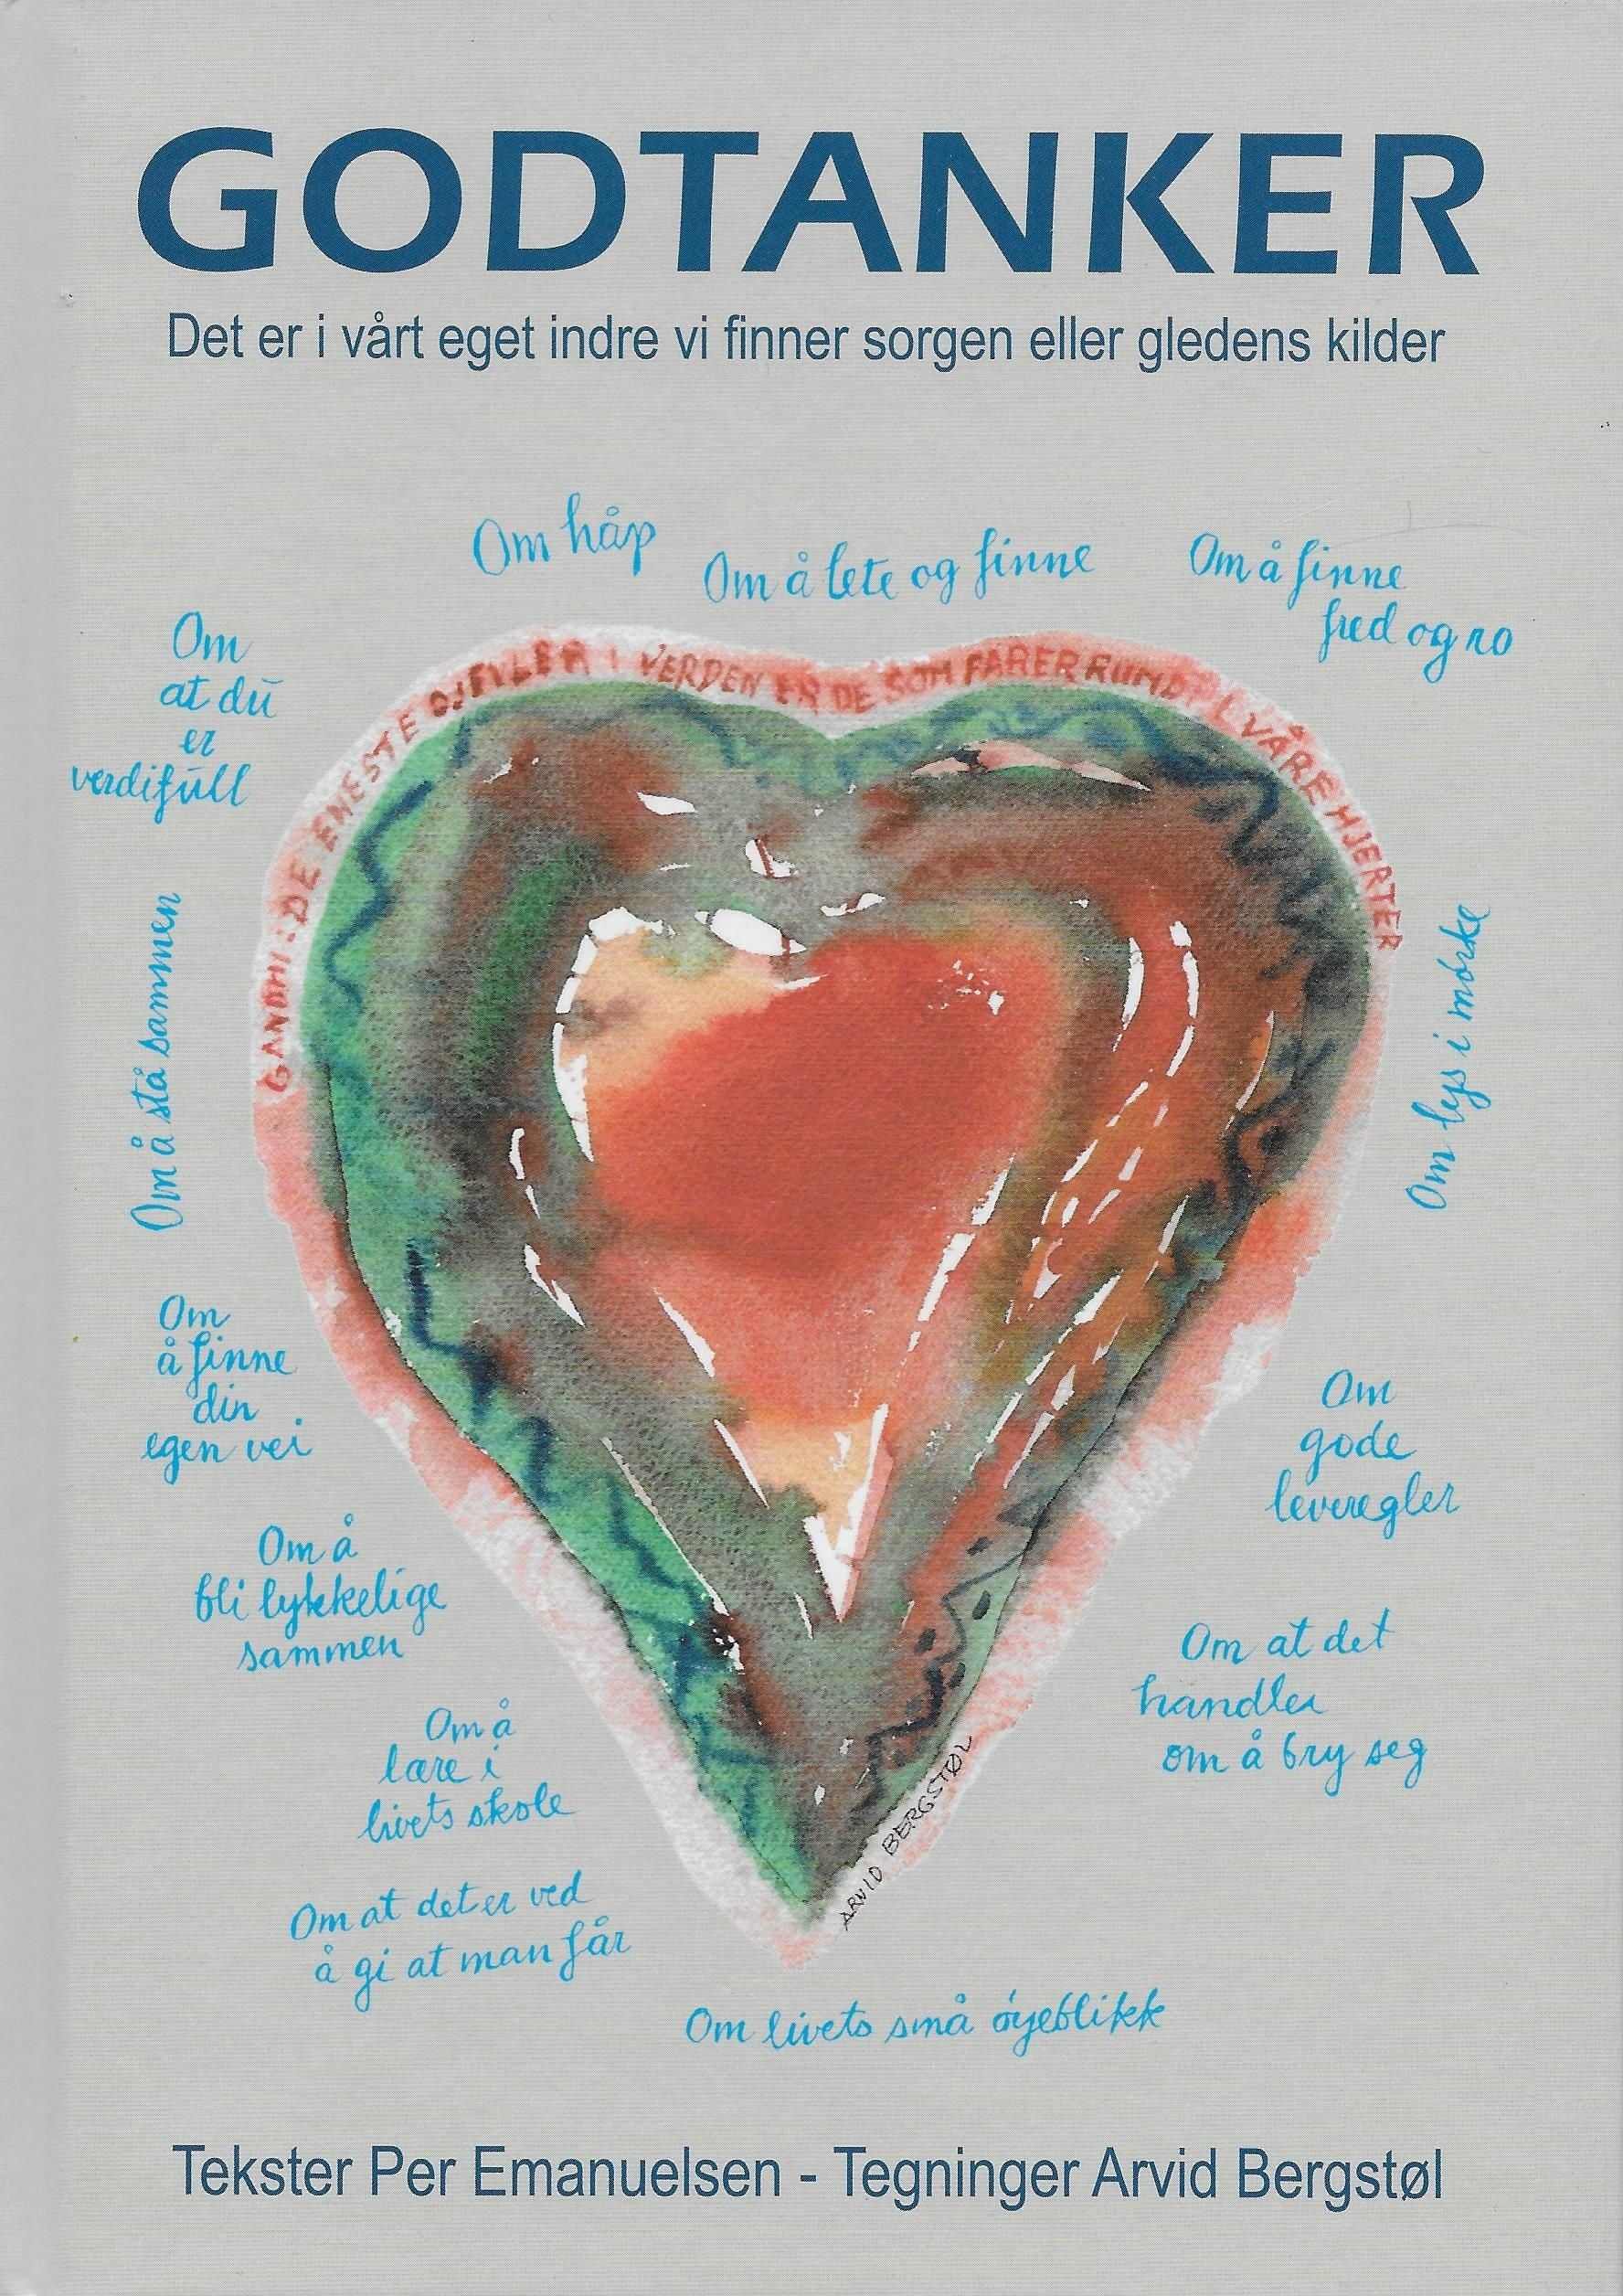 GODTANKER
Det er i vårt eget indre vi finner sorgen eller gledens kilder
Om håp
Om å lete og finne
Om å finne
fred og ro
Om
at du
er
verdifull
GANDHI: DE ENESTE DJEVLER I VERDEN ER DE SOM FARER RUNDT I VÅRE HJERTER
Om å stå sammen
Om lys i mørke
Om
å finne
din
egen vei
Om
gode
leveregler
Om å
bli lykkelige
sammen
Om at det
handler
om å bry seg
Om å
lære i
livets skole
ARVID BERGSTØL
Om at det er ved
å gi at man får
Om livets små øyeblikk
Tekster Per Emanuelsen - Tegninger Arvid Bergstøl